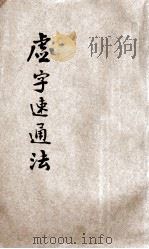 虛字速通法
mtoou.info